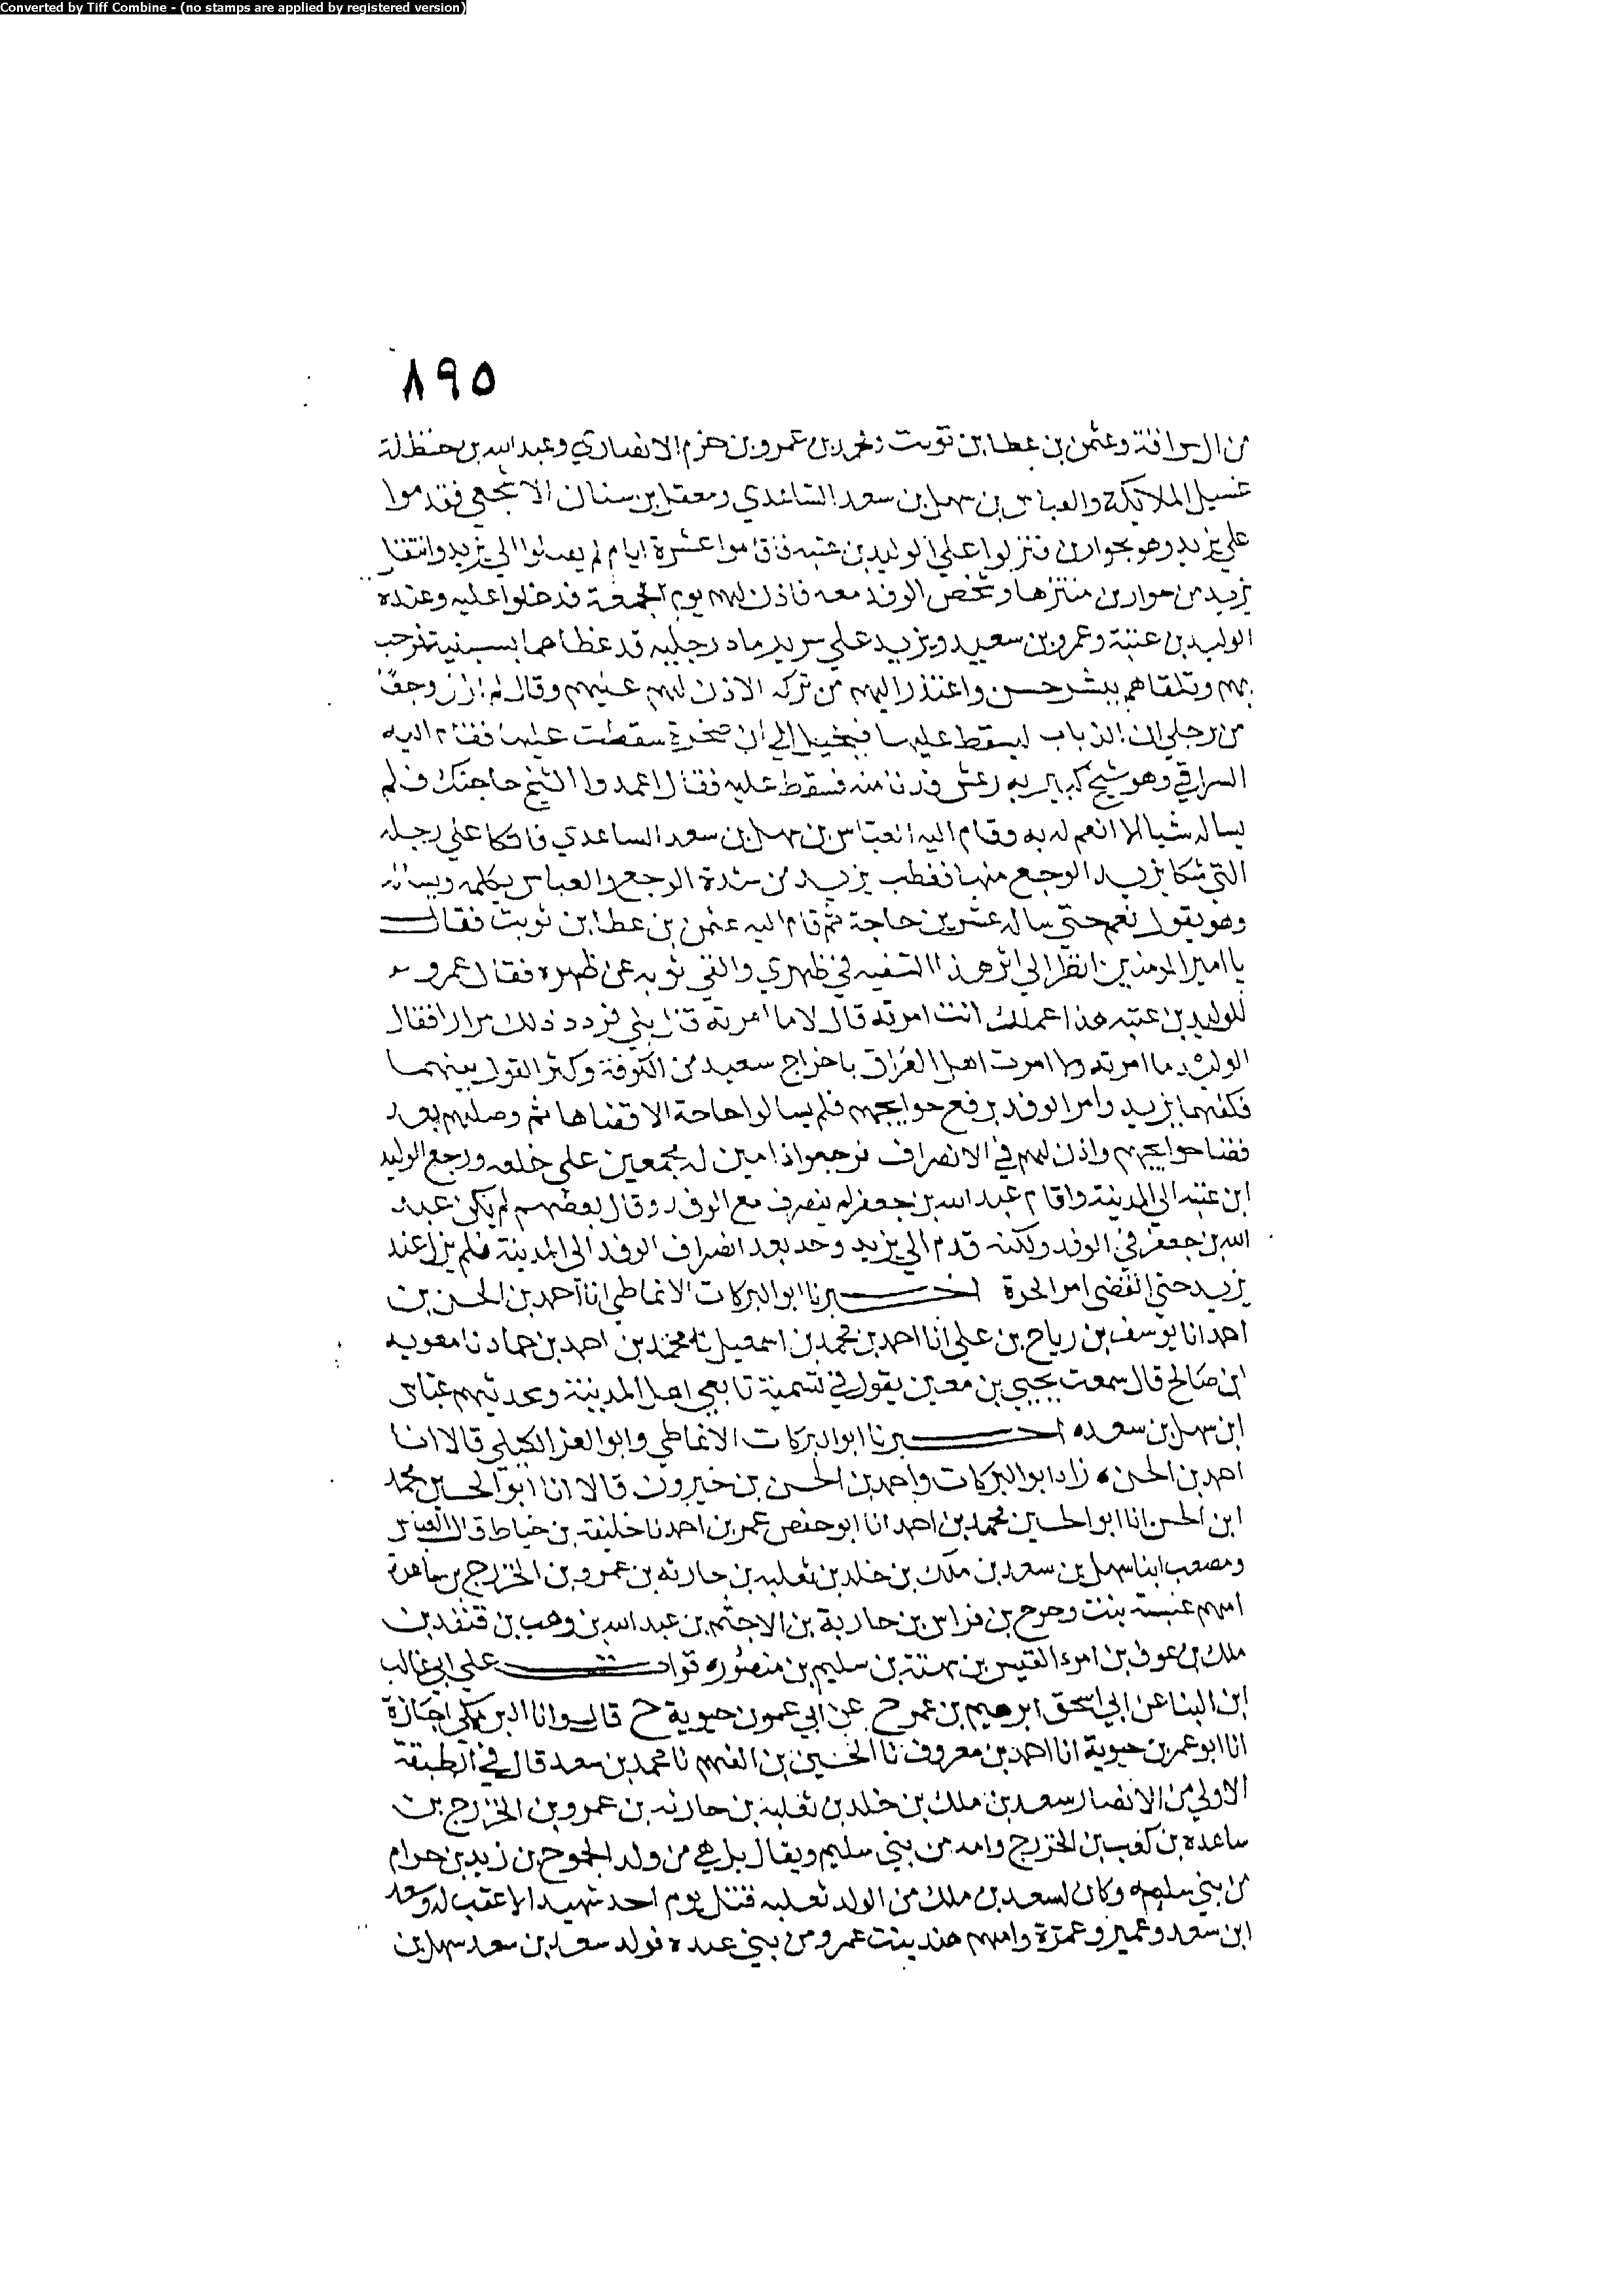 Converted by Tiff Combine - (no stamps are applied by registered version)
٨٩٥
من السراقة وعثمن بن عطا بن تويت ومحمد بن عمرو بن حزم الانصاري وعبد الله بن حنظلة
غسيل الملايكة والعباس بن سهل بن سعد الساعدي ومعقل بن سنان الاشجعي فقدموا
علي يزيد وهو بحوارين فنزلوا علي الوليد بن عتبه فاقاموا عشرة ايام لم يصلوا الي يزيد وانتقل
يزيد من حوارين متنزها وشخص الوفد معه فاذن لهم يوم الجمعة فدخلوا عليه وعنده
الوليد بن عتبة وعمرو بن سعيد ويزيد علي سرير ماد رجليه قد غطاهما بسبنية فرحب
بهم وتلقاهم ببشر حسن واعتذر اليهم من تركه الاذن لهم عليهم وقال لم ازل وجعًا
من رجلي ان الذباب ليسقط عليها فيخيل الي ان صخرة سقطت عليها فقام اليه
السراقي وهو شيخ كبير به رعش فدنا منه فسقط عليه فقال اعمدوا الشيخ حاجتك فلم
يساله شيا الا انعم له به وقام اليه العباس بن سهل بن سعد الساعدي فاتكا علي رجله
التي شكا يزيد الوجع منها فقطب يزيد من شدة الوجع والعباس يكلمه ويساله
وهو يقول نعم حتي ساله عشرين حاجة ثم قام اليه عثمن بن عطا بن تويت فقال
يا امير المومنين انظر الي اثر هذا السفيه في ظهري والقي ثوبه عن ظهره فقال عمرو
للوليد بن عتبه هذا عملك انت امرته قال لا ما امرته قال بلي فردد ذلك مرارا فقال
الوليد ما امرته ولا امرت اهل العراق باخراج سعيد من الكوفة وكثر القول بينهما
فكفهما يزيد وامر الوفد برفع حوايجهم فلم يسالوا حاجة الا قضاها ثم وصلهم بعد
قضا حوايجهم واذن لهم في الانصراف فرجعوا ذامين له مجمعين علي خلعه ورجع الوليد
ابن عتبه الي المدينة واقام عبد الله بن جعفر لم ينصرف مع الوفد وقال بعضهم لم يكن عبد
الله بن جعفر في الوفد ولكنه قدم الي يزيد وحده بعد انصراف الوفد الى المدينة فلم يزل عند
يزيد حتي انقضى امر الحرة اخبرنا ابو البركات الانماطي انا احمد بن الحسن بن
احمد انا يوسف بن رباح بن علي انا احمد بن محمد بن اسمعيل نا محمد بن احمد بن حماد نا معوية
ابن صالح قال سمعت يحيي بن معين يقول في تسمية تابعي اهل المدينة ومحدثيهم عباس
ابن سهل بن سعد ه اخبرنا ابو البركات الانماطي وابو العز الكيلي قالا انا
احمد بن الحسن ه زاد ابو البركات واحمد بن الحسن بن خيرون قالا انا ابو الحسين محمد
ابن الحسن انا ابو الحسين محمد بن احمد انا ابو حفص عمر بن احمد نا خليفة بن خياط قال العباس
ومصعب ابنا سهل بن سعد بن ملك بن خلد بن ثعلبه بن حارثه بن عمرو بن الخزرج بن ساعدة
امهم بنت وحوح بن فراس بن حارثة بن الاجثم بن عبد الله بن وهب بن قنفد بن
ملك بن عوف بن امرء القيس بن بهثة بن سليم بن منصور ه قرات علي ابي غالب
ابن البنا عن ابي اسحق ابرهيم بن عمر ح عن ابي عمر بن حيوية ح قال وانا البرمكي اجازة
انا ابو عمر بن حيوية انا احمد بن معروف نا الحسين بن الفهم نا محمد بن سعد قال في الطبقة
الاولي من الانصار سعد بن ملك بن خلد بن ثعلبة بن حارثه بن عمرو بن الخزرج بن
ساعده بن كعب بن الخزرج وامه من بني سليم ويقال بل هي من ولد الجموح بن زيد بن حرام
من بني سلمه وكان لسعد بن ملك من الولد ثعلبه قتل يوم احد شهيدا لا عقب له وسعد
ابن سعد وعمير وعمرة وامهم هند بنت عمرو من بني عدره فولد سعد بن سعد سهل بن